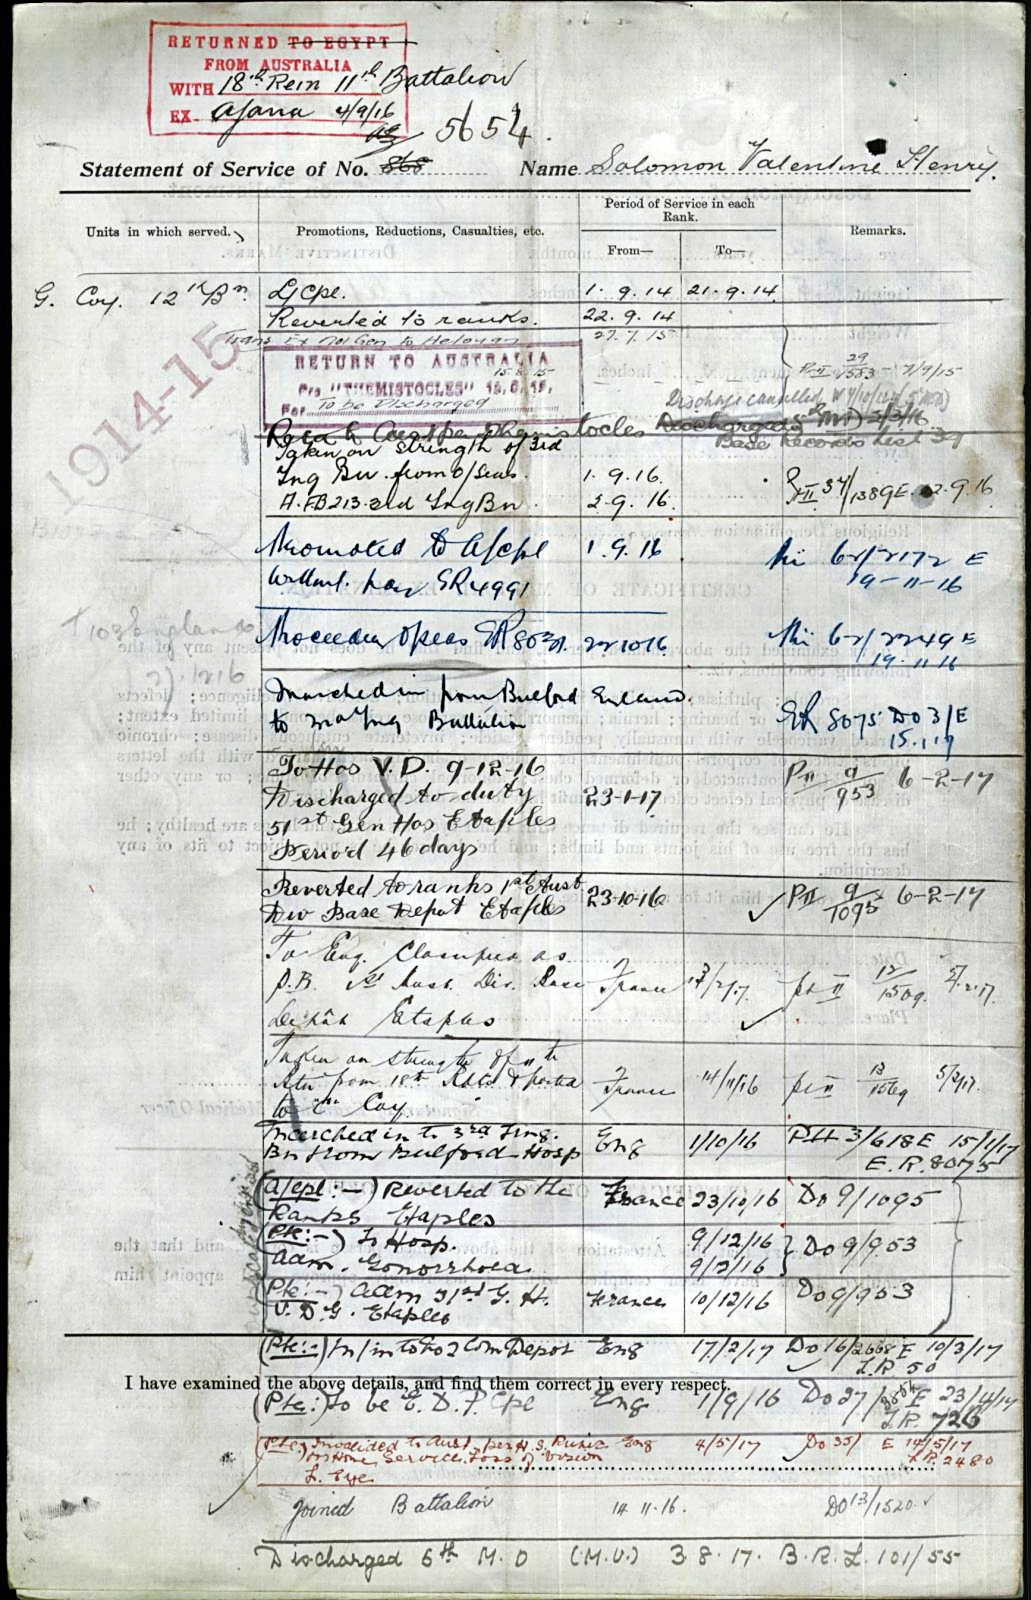 RETURNED TO EGYPT
FROM AUSTRALIA
WITH 18th Rein 11th Battalion
EX. Ajana 4/9/16
5654.
Statement of Service of No. 868 Name Solomon Valentine Henry.
Units in which served. Promotions, Reductions, Casualties, etc. Period of Service in each Rank. Remarks.
From— To—
G. Coy. 12th Bn. L/Cpl. 1.9.14 21.9.14
Reverted to ranks. 22.9.14
1914-15
27.7.15
RETURN TO AUSTRALIA
Per "THEMISTOCLES"
For To be Discharged
7/9/15
Discharge cancelled
Base Records List 39
Taken on strength of 3rd
Tng Bn. from O/Seas. 1.9.16.
A.F.B213. 3rd Tng Bn. 2.9.16.
Promoted to A/Cpl 1.9.16
without pay ER 4991
19-11-16
Proceeded O/seas 22 10 16
19.11.16
Marched in from Bulford England
to Tng Battalion ER 8075 DO 3/E
15.1.17
To Hos V.D. 9-12-16 PII 9/953 6-2-17
Discharged to duty 23-1-17
51st Gen Hos Etaples
Period 46 days
Reverted to ranks 1st Aust 23-10-16 PII 9/1095 6-2-17
Div Base Depot Etaples
To Eng. Classified as
P.B. 1st Aust. Div. Base France pt II 12/1509
Depôt Etaples
Taken on strength of 11th
Btn from 18th Rfts & posted France 14/11/16 pt II 13
to "C" Coy.
Marched in to 3rd Tng. Eng 1/10/16 Pt II 3/618E 15/1/17
Bn from Bulford Hosp E.R. 8075
(A/Cpl:—) Reverted to the France 23/10/16 DO 9/1095
Ranks Etaples
(Pte:—) To Hosp. 9/12/16 DO 9/953
adm. Gonorrhoea 9/12/16
(Pte:—) adm 51st G.H. France 10/12/16 DO 9/953
V.D.G. Etaples
(Pte:-) M/in to No 2 Com Depot Eng 17/2/17 DO 16/2668 E 10/3/17
I.R. 50
I have examined the above details, and find them correct in every respect.
(Pte:) To be E.D.P. Cpl Eng 1/9/16 DO 27/ E 23/4/17
I.R. 726
(Pte:) Invalided to Aust. per H.S. Runic Eng 4/5/17 DO 35/ E 14/5/17
for Home Service, Loss of Vision I.R. 2480
L. Eye
Joined Battalion 14.11.16. DO 13/1520
Discharged 6th M.D (M.U.) 3.8.17. B.R.L. 101/55